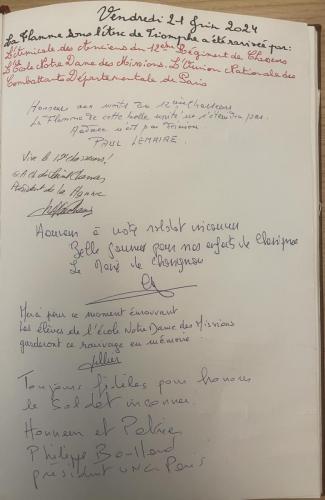 Vendredi 21 Juin 2024
La Flamme sous l'Arc de Triomphe a été ravivée par:
L'Amicale des Anciens du 12ème Régiment de Chasseurs
L'Ecole Notre Dame des Missions. L'Union Nationale des
Combattants Départementale de Paris
Honneur aux morts du 12ème Chasseurs
La Flamme de cette belle unité ne s'éteindra pas.
PAUL LEMAIRE
Vive le 12e chasseurs!
Président de la Flamme
Honneur à notre soldat inconnu
Belle journée pour nos enfants de
Le Maire de
Merci pour ce moment émouvant
Les élèves de l'école Notre Dame des Missions
garderont ce ravivage en mémoire
Toujours fidèles pour honorer
le Soldat inconnu
Honneur et Patrie
Philippe
président UNC Paris